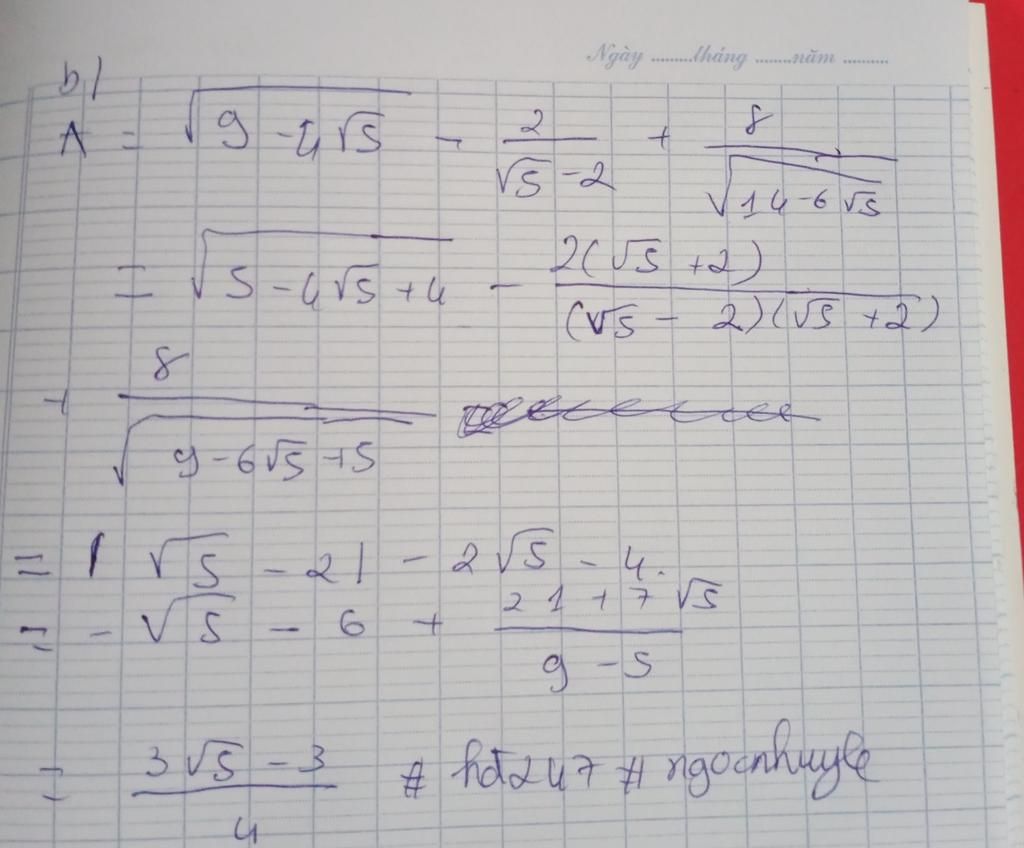 Ngày ..........tháng ........năm ..........
b/
A = √(9 - 4√5) - 2/(√5 - 2) + 8/√(14 - 6√5)
= √(5 - 4√5 + 4) - 2(√5 + 2)/((√5 - 2)(√5 + 2))
+ 8/√(9 - 6√5 + 5)
= |√5 - 2| - 2√5 - 4.
= - √5 - 6 + (21 + 7√5)/(9 - 5)
= (3√5 - 3)/4 # hđ247 # ngocnhuyle